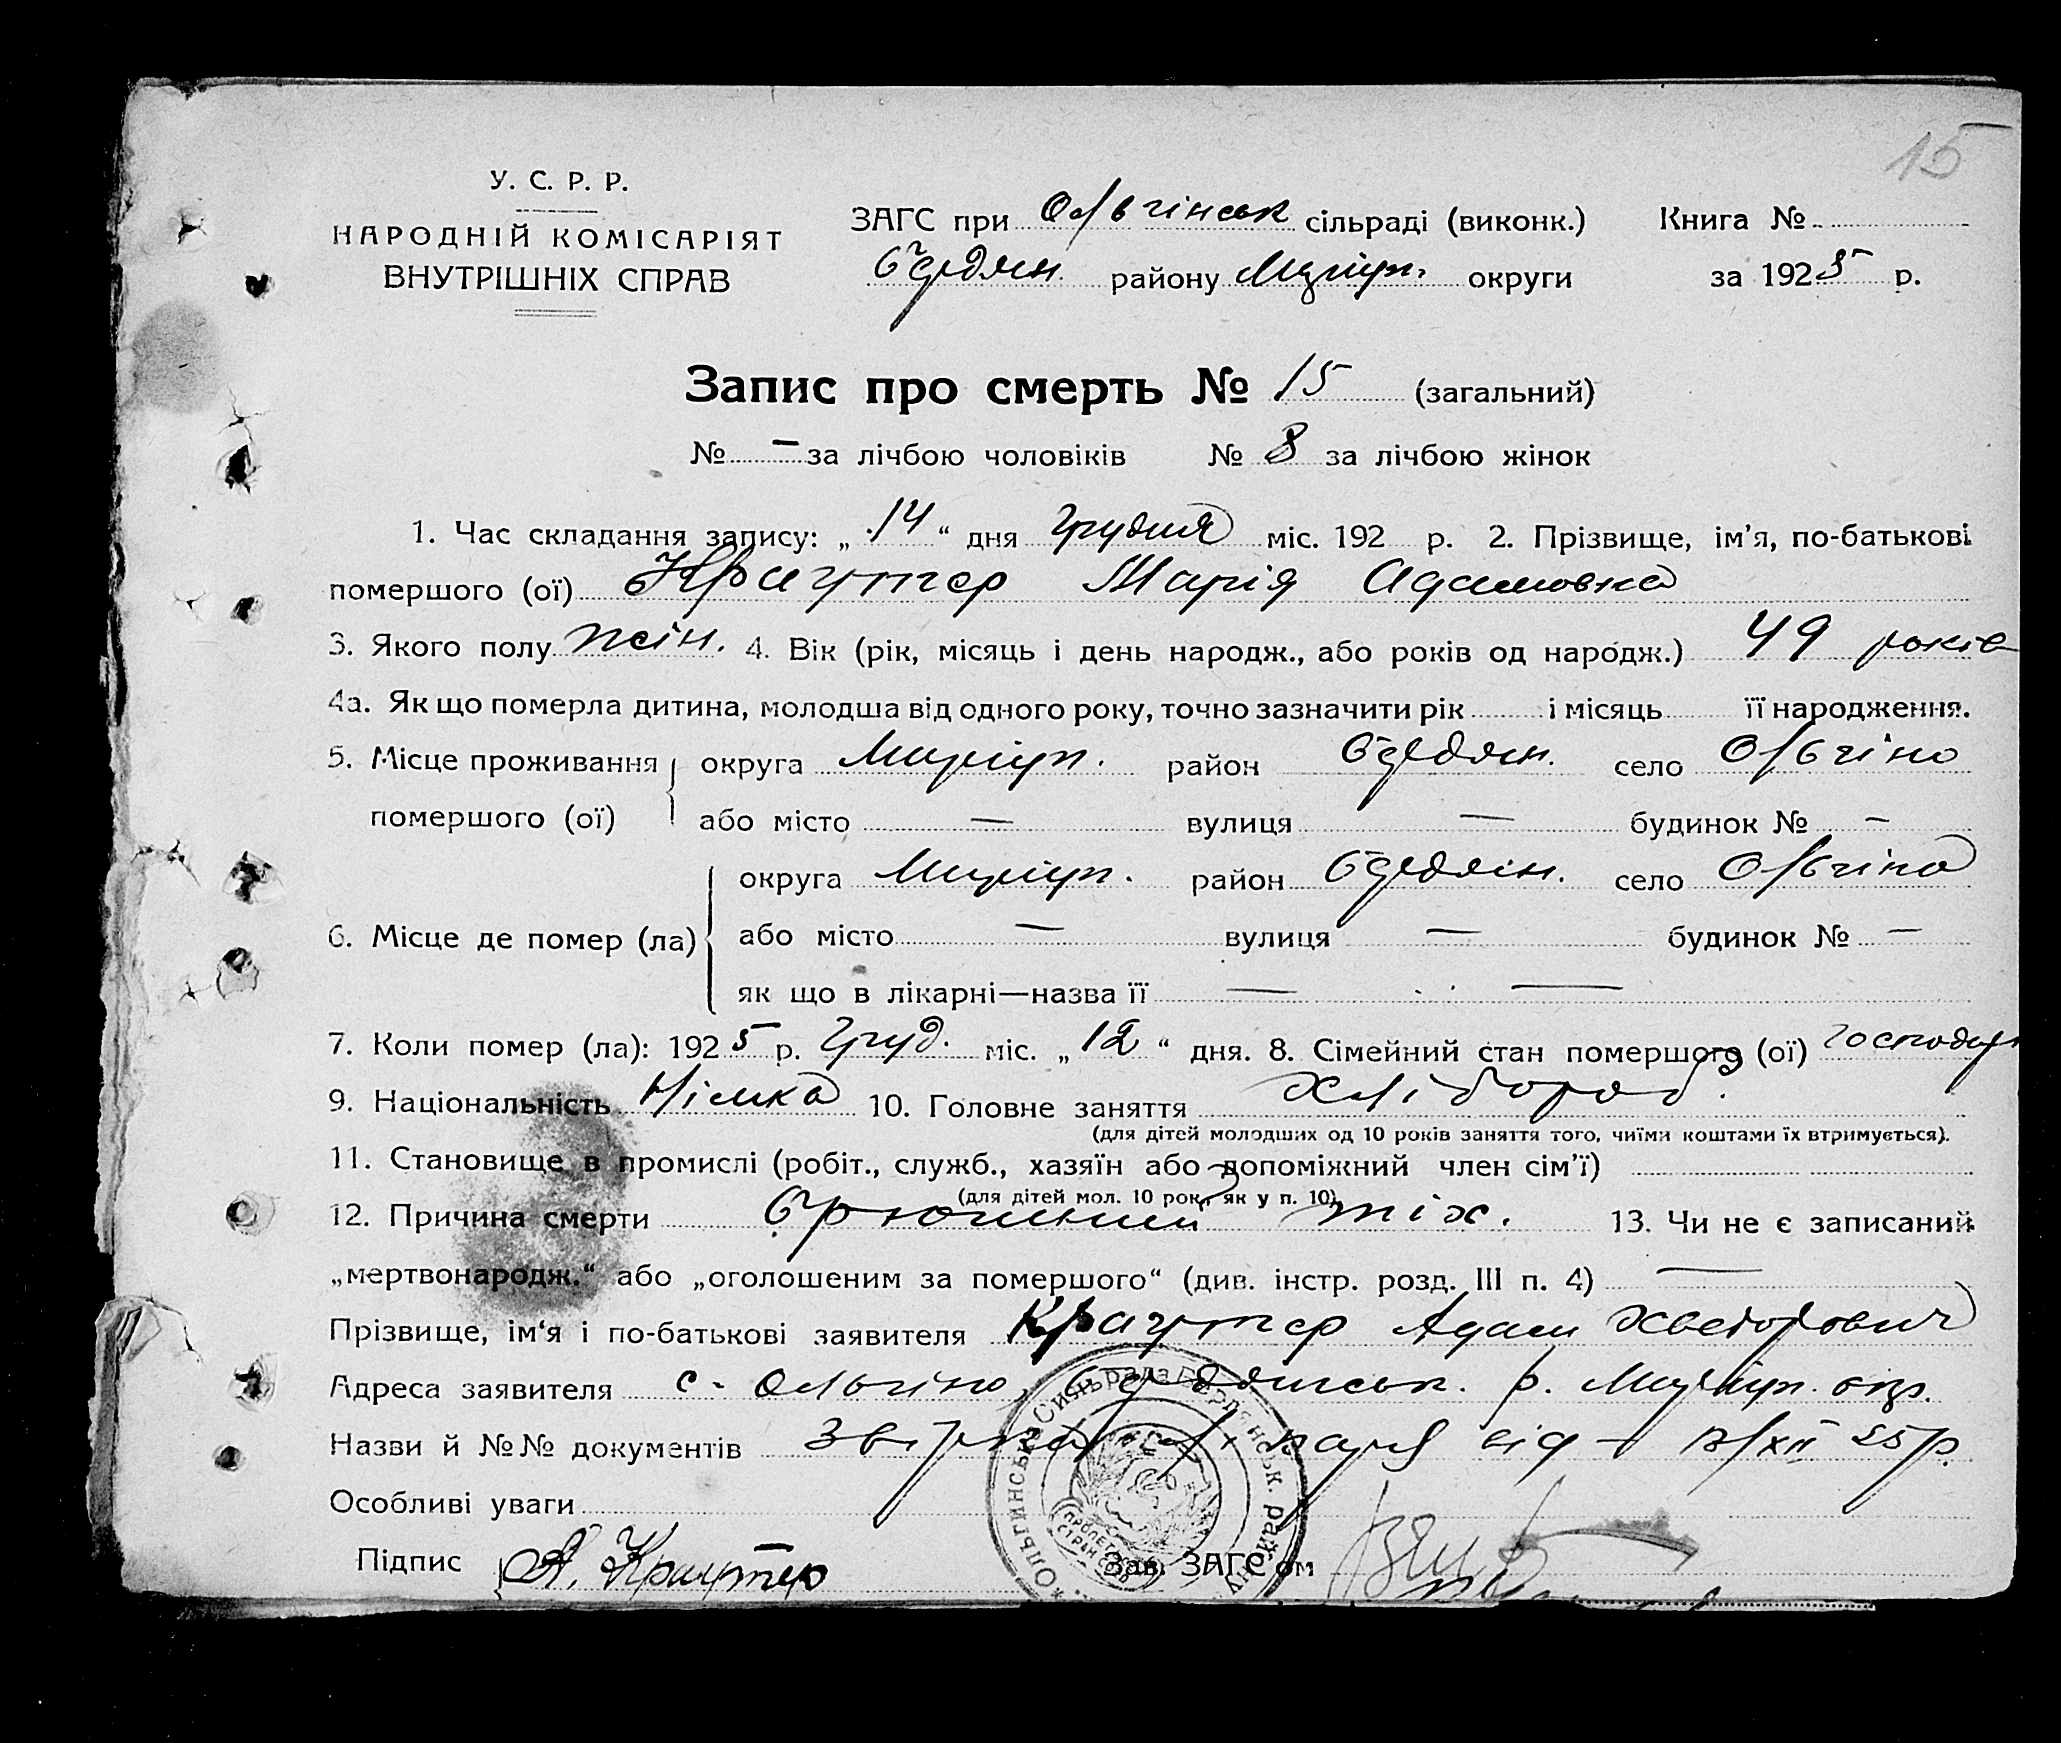 15
У. С. Р. Р.
НАРОДНІЙ КОМІСАРІЯТ
ВНУТРІШНІХ СПРАВ
ЗАГС при Ольгінськ сільраді (виконк.) Книга №
Бердян. району Маріуп. округи за 1925 р.
Запис про смерть № 15 (загальний)
№ — за лічбою чоловіків № 8 за лічбою жінок
1. Час складання запису: „14“ дня Грудня міс. 192 р. 2. Прізвище, ім'я, по-батькові
помершого (ої) Краутер Марія Адамовна
3. Якого полу жін. 4. Вік (рік, місяць і день народж., або років од народж.) 49 років
4а. Як що померла дитина, молодша від одного року, точно зазначити рік і місяць її народження.
5. Місце проживання округа Маріуп. район Бердян. село Ольгіно
помершого (ої) або місто — вулиця — будинок № —
округа Маріуп. район Бердян. село Ольгіно
6. Місце де помер (ла) або місто — вулиця — будинок № —
як що в лікарні—назва її — —
7. Коли помер (ла): 1925 р. Груд. міс. „12“ дня. 8. Сімейний стан помершого (ої) господар
9. Національність Німка 10. Головне заняття Хлібороб.
(для дітей молодших од 10 років заняття того, чиїми коштами їх втримується).
11. Становище в промислі (робіт., служб., хазяїн або допоміжний член сім'ї)
(для дітей мол. 10 рок. як у п. 10).
12. Причина смерти Брюшний тіх. 13. Чи не є записаний
„мертвонародж.“ або „оголошеним за помершого“ (див. інстр. розд. III п. 4) —
Прізвище, ім'я і по-батькові заявителя Краутер Адам Хведорович
Адреса заявителя с. Ольгіно, Бердянськ. р. Маріуп. окр.
Назви й №№ документів від XII 25 р.
Особливі уваги
Підпис А. Краутер Зав. ЗАГС'ом
Ольгинська Сильрада Бердянськ. району
ПРОЛЕТАРІ